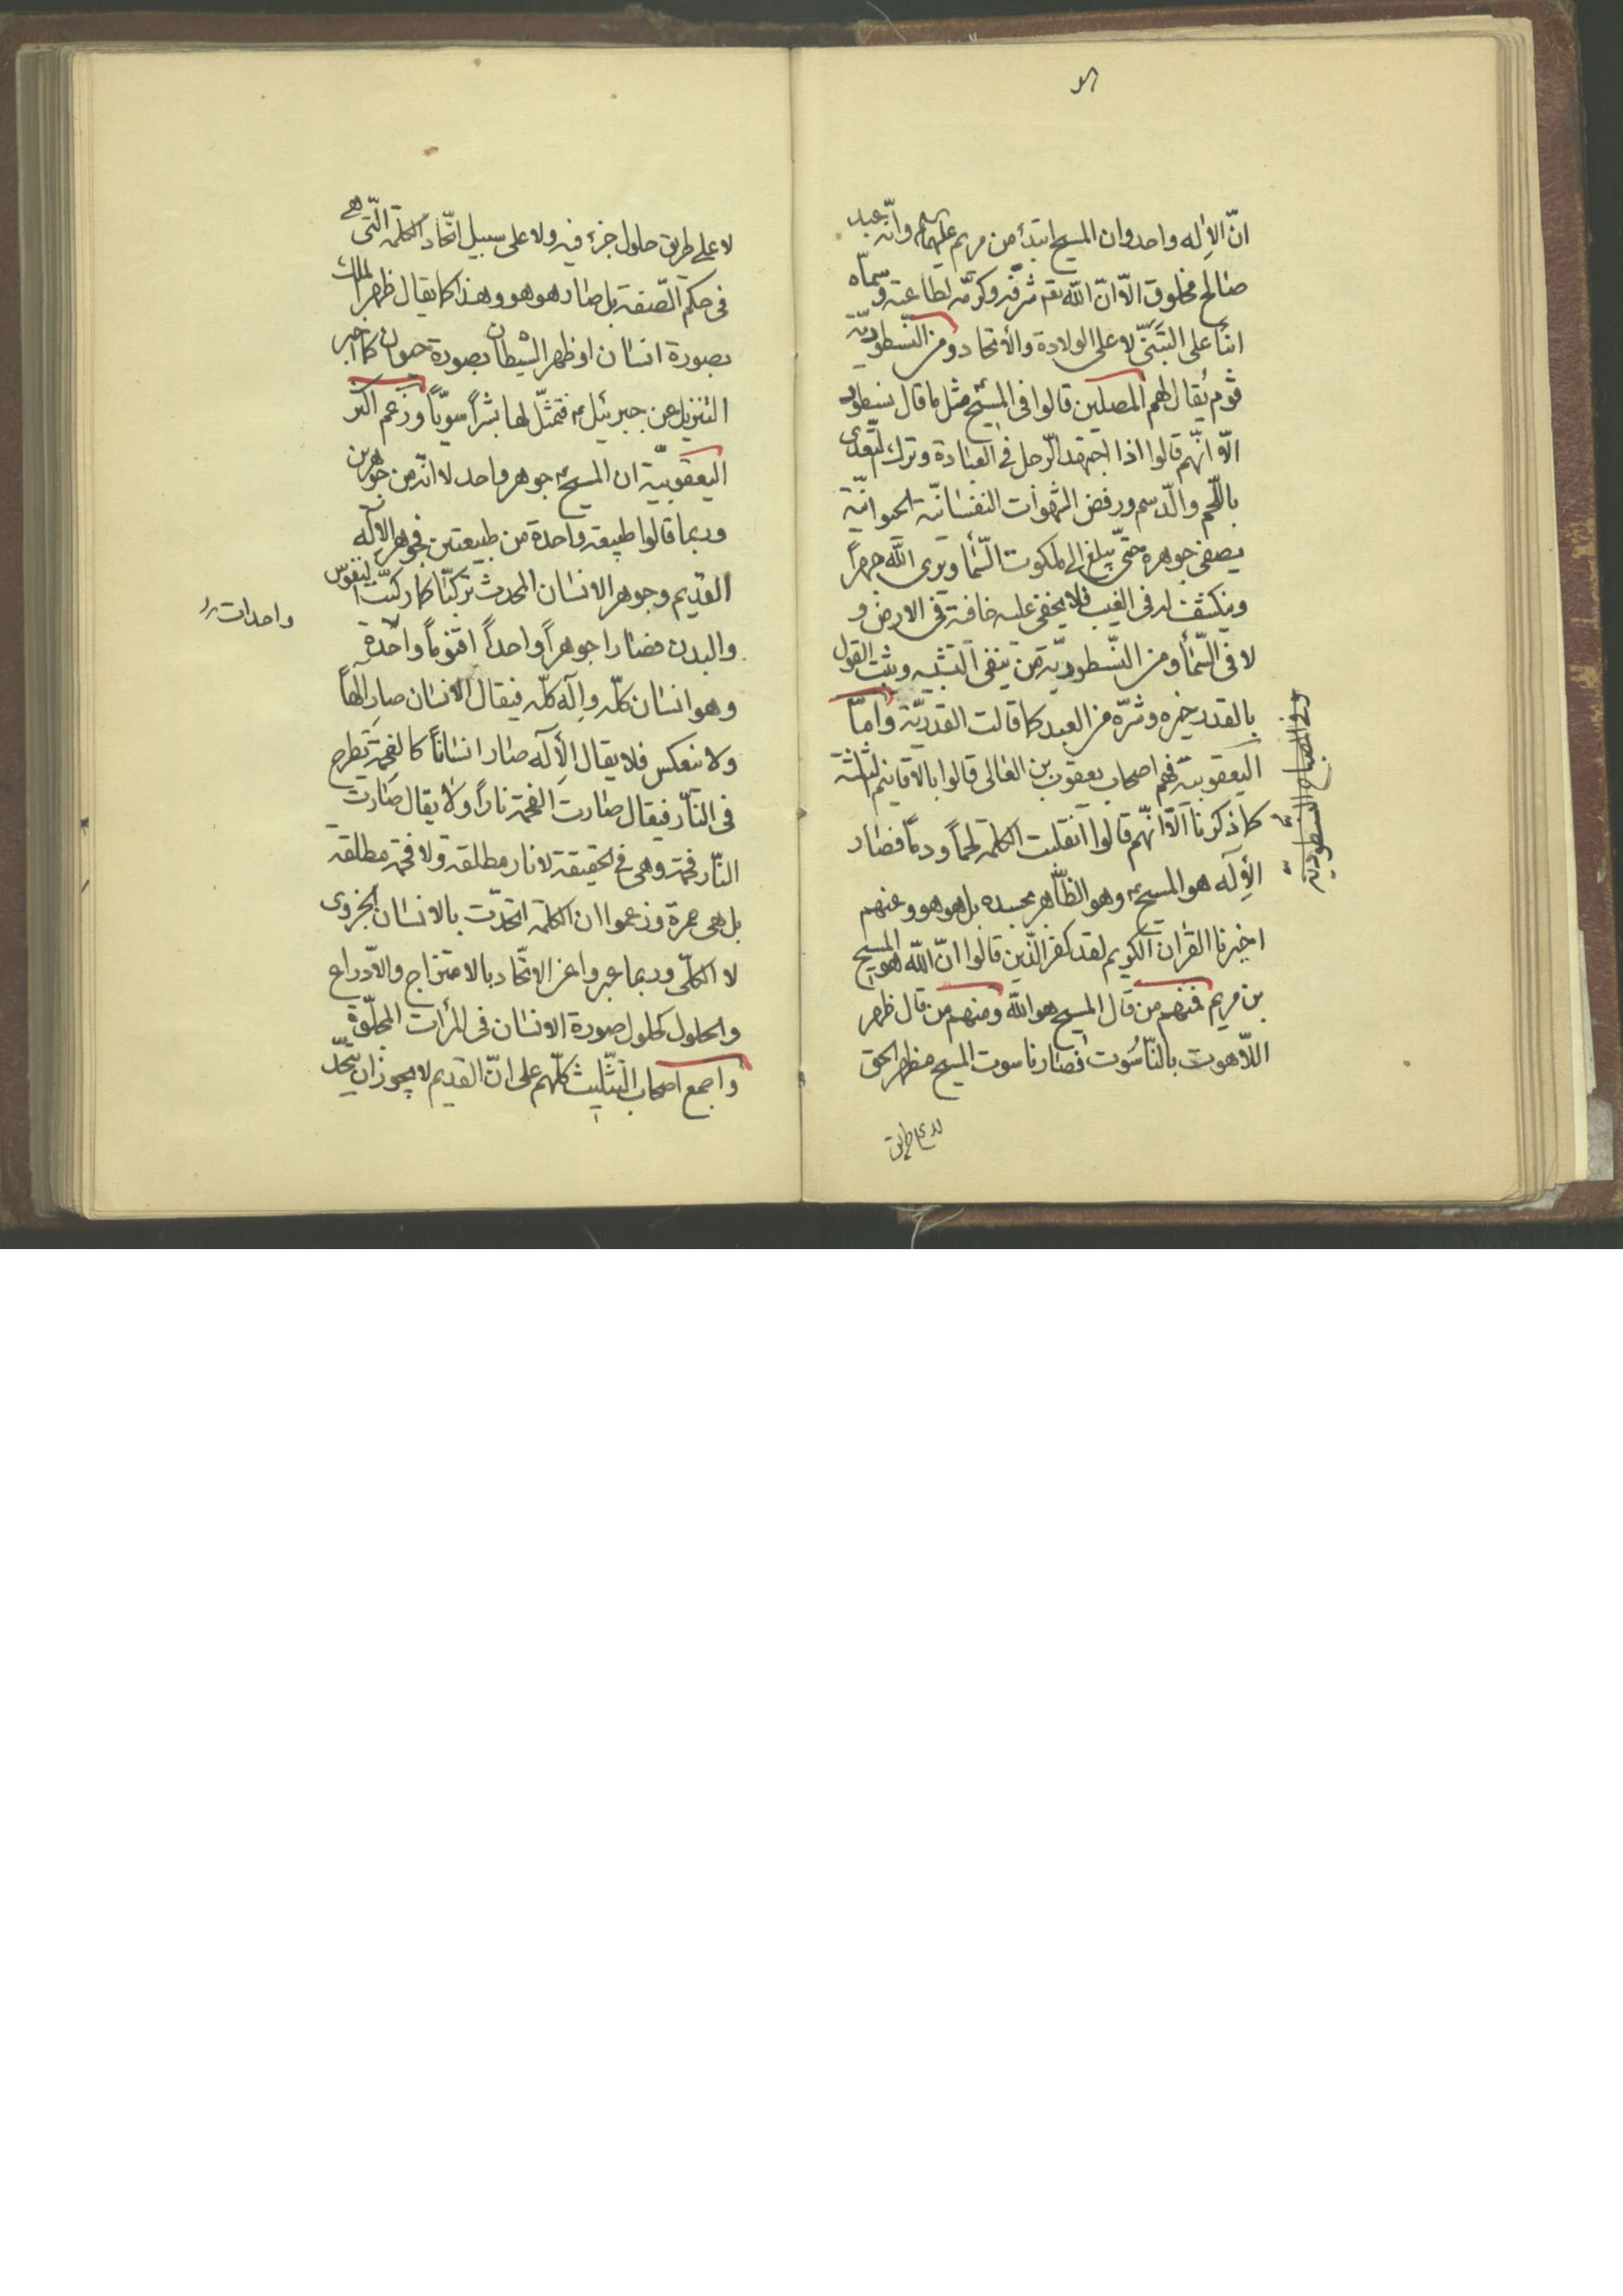 انّ الاِله واحد وان المسيح ابتدأ من مريم عليهما السلم وانّه عبد
صالح مخلوق الّا انّ الله تعم شرّفه وكرّمه لطاعته وسمّاه
ابنا على التبنّي لا على الولادة والاتحاد ومن النّسطوريّة
قوم يُقال لهم المصلّين قالوا في المسيح مثل ما قال نسطور
الّا انّهم قالوا اذا اجتهد الرّجل في العبادة وترك التغذي
باللّحم والدّسم ورفض الشهوات النفسانيّة الحيوانيّة
يصفى جوهره حتّى يبلغ الى ملكوت السّماء ويرى الله جهراً
وينكشف له في الغيب فلا يخفى عليه خافية في الارض و
لا في السّماء ومن النّسطوريّة من ينفي التشبيه ويثبت القول
بالقدر خيره وشرّه من العبد كما قالت القدريّة وامّا
اليعقوبية فهم اصحاب يعقوب بن الغالي قالوا بالاقانيم الثلثة
كما ذكرنا الّا انّهم قالوا انقلبت الكلمة لحماً ودماً فصار
الاِله هو المسيح ع وهو الظّاهر بجسده بل هو هو وعنهم
اخبرنا القرآن الكريم لقد كفر الّذين قالوا انّ الله هو المسيح
بن مريم فمنهم من قال المسيح هو الله ومنهم من قال ظهر
اللّاهوت بالنّاسُوت فصار ناسوت المسيح مظهر الحق
لا على طريق
وفي المصباح النسطوريّة
لا على طريق حلول جزء فيه ولا على سبيل اتّحاد الكلمة الّتي هي
في حكم الصّفة بل صار هو هو وهذا كما يقال ظهر الملك
بصورة انسان او ظهر الشيطان بصورة حيوان كما اخبر
التنزيل عن جبرئيل ع فتمثّل لها بشراً سويّاً وزعم اكثر
اليعقوبيّة ان المسيح ع جوهر واحد لا انّه من جوهرين
وربما قالوا طبيعة واحدة من طبيعتين فجوهر الاِله
القديم وجوهر الانسان المحدث تركّبا كما تركّبت النفوس
والبدن فصارا جوهراً واحداً اقنوماً واحدة
واحدات
وهو انسان كلّه واِله كلّه فيقال الانسان صار الهاً
ولا ينعكس فلا يقال الاِله صار انساناً كالفحمة تطرح
في النّار فيقال صارت الفحمة ناراً ولا يقال صارت
النّار فحمة وهي في الحقيقة لا نار مطلقة ولا فحمة مطلقة
بل هي جمرة وزعموا ان الكلمة اتحدّت بالانسان الجزوى
لا الكلّي وربما عبروا عن الاتّحاد بالامتزاج والادّراع
والحلول كحلول صورة الانسان في المرأت المجلّوة
واجمع اصحاب التّثليث كلّهم على انّ القديم لا يجوز ان يتّحد